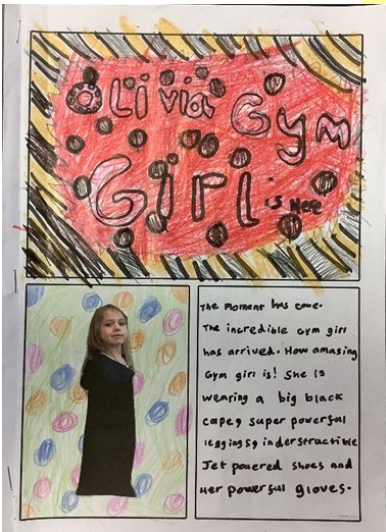 Olivia Gym
Girl is Here
The moment has come.
The incredible Gym girl
has arrived. How amasing
Gym girl is! She is
wearing a big black
cape, super powerful
leggings, inderstractible
Jet powered shoes and
Her powerful gloves.